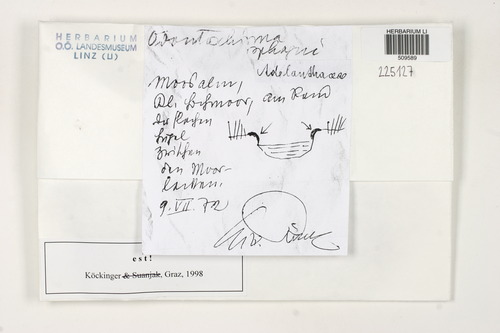 HERBARIUM
O.Ö. LANDESMUSEUM
LINZ (LI)
HERBARIUM LI
509589
225127
Odontoschisma
sphagni
Adelanthaceae
Moosalm,
Hochmoor, am Rand
der flachen
Hügel
zwischen
den Moor-
lacken.
9.VII.72
est!
Köckinger & Suanjak, Graz, 1998